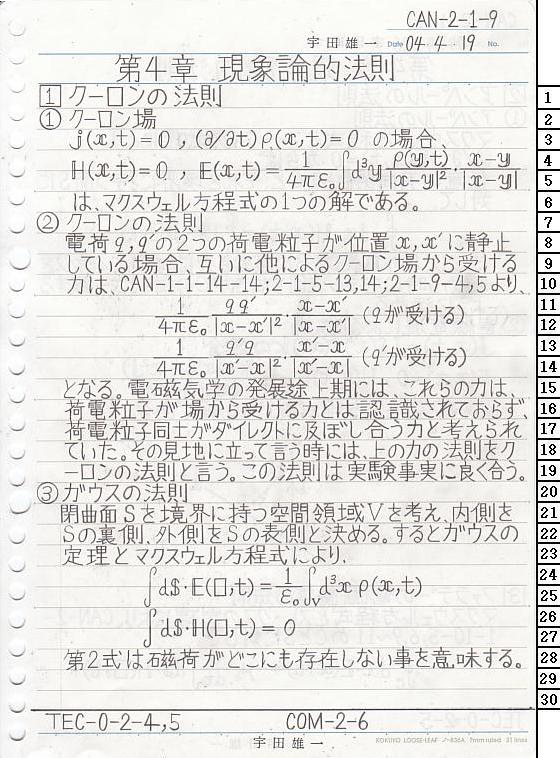 CAN-2-1-9
宇田雄一 Date 04・4・19 No.
第4章 現象論的法則
1 クーロンの法則
① クーロン場
j(x,t)=0 , (∂/∂t)ρ(x,t)=0 の場合、
H(x,t)=0 , E(x,t)= 1/4πε₀ ∫d³y ρ(y,t)/|x-y|² · x-y/|x-y|
は、マクスウェル方程式の1つの解である。
② クーロンの法則
電荷q,q′の2つの荷電粒子が位置x,x′に静止
している場合、互いに他によるクーロン場から受ける
力は、CAN-1-1-14-14;2-1-5-13,14;2-1-9-4,5より、
1/4πε₀ qq′/|x-x′|² · x-x′/|x-x′| (qが受ける)
1/4πε₀ q′q/|x′-x|² · x′-x/|x′-x| (q′が受ける)
となる。電磁気学の発展途上期には、これらの力は、
荷電粒子が場から受ける力とは認識されておらず、
荷電粒子同士がダイレクトに及ぼし合う力と考えられ
ていた。その見地に立って言う時には、上の力の法則をク
ーロンの法則と言う。この法則は実験事実に良く合う。
③ ガウスの法則
閉曲面Sを境界に持つ空間領域Vを考え、内側を
Sの裏側、外側をSの表側と決める。するとガウスの
定理とマクスウェル方程式により、
∫dS·E(□,t)= 1/ε₀ ∫_V d³x ρ(x,t)
∫dS·H(□,t)=0
第2式は磁荷がどこにも存在しない事を意味する。
TEC-0-2-4,5 COM-2-6
宇田雄一 KOKUYO LOOSE-LEAF ノ-836A 7mm ruled 31 lines
1
2
3
4
5
6
7
8
9
10
11
12
13
14
15
16
17
18
19
20
21
22
23
24
25
26
27
28
29
30